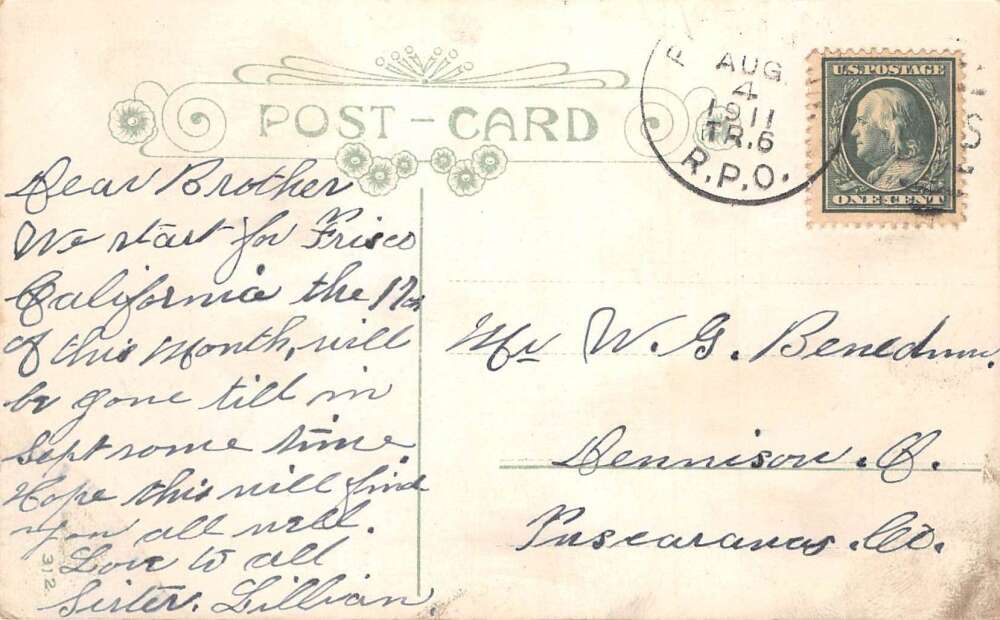 POST-CARD
AUG
4
1911
TR.6
R.P.O.
U.S. POSTAGE
ONE CENT
Dear Brother
We start for Frisco
California the 17th
of this Month, will
be gone till in
Sept some time.
Hope this will find
you all well.
Love to all
Sister. Lillian
312
Mr W. G.
Dennison. O.
Tuscarawas. Co.